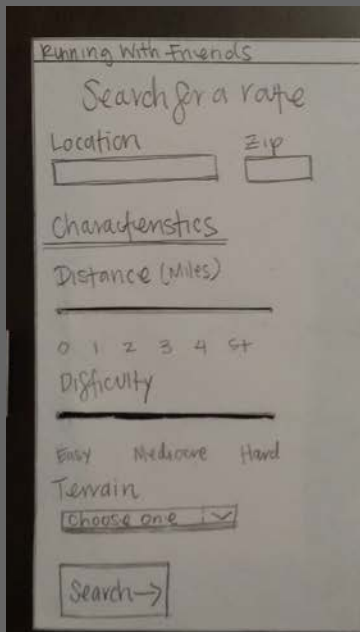 Running With Friends
Search for a route
Location Zip
Characteristics
Distance (Miles)
0 1 2 3 4 5+
Difficulty
Easy Mediocre Hard
Terrain
Choose one
Search→